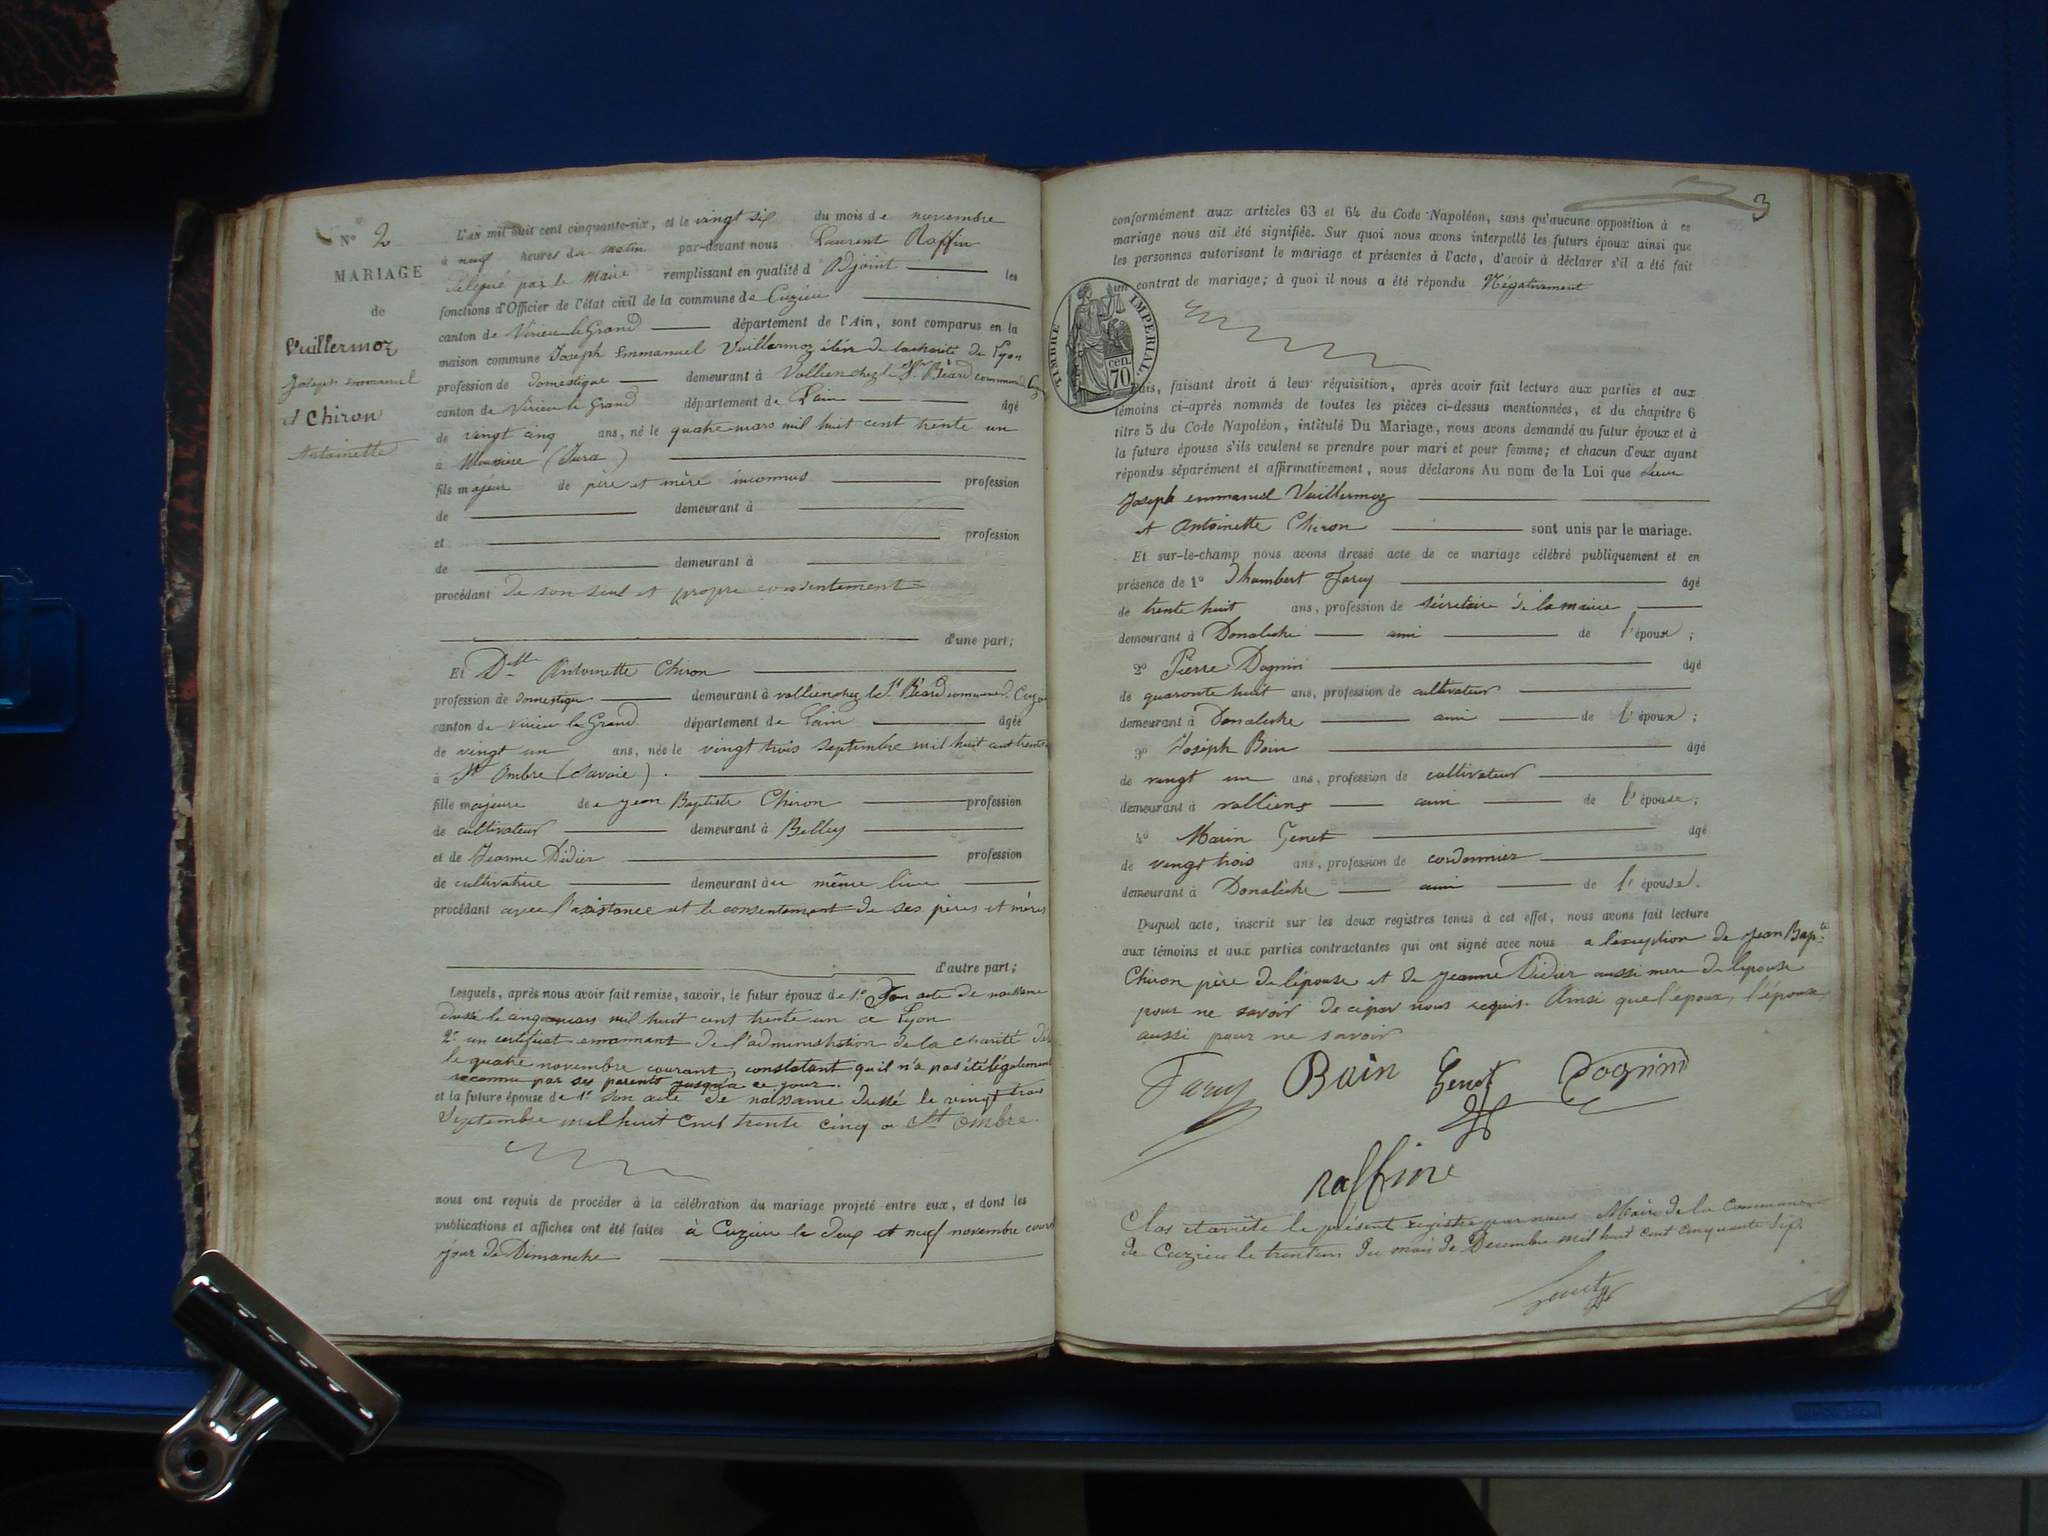 N° 2
MARIAGE
de
Vuillermoz
Joseph Emmanuel
et Chiron
Antoinette
L'an mil huit cent cinquante-six, et le vingt six du mois de novembre
à neuf heures du matin par-devant nous Laurent Raffin
Délégué par le Maire remplissant en qualité d'Adjoint les
fonctions d'Officier de l'état civil de la commune de Cuzieu
canton de Virieu le Grand département de l'Ain, sont comparus en la
maison commune Joseph Emmanuel Vuillermoz élève de la charité de Lyon
profession de domestique demeurant à Vollien chez le Sr Béard commune de
canton de Virieu le Grand département de Lain âgé
de vingt cinq ans, né le quatre mars mil huit cent trente un
à (Jura)
fils majeur de père et mère inconnus profession
de demeurant à
et profession
de demeurant à
procédant de son seul et propre consentement
d'une part;
Et Dlle Antoinette Chiron
profession de domestique demeurant à vollien chez le Sr Béard commune d. Cuzieu
canton de Virieu le Grand département de Lain âgée
de vingt un ans, née le vingt trois septembre mil huit cent trente
à St Ombre (Savoie).
fille majeure de Jean Baptiste Chiron profession
de cultivateur demeurant à Belley
et de Jeanne Didier profession
de cultivatrice demeurant au même lieu
procédant avec l'assistance et le consentement de ses pères et mères
d'autre part;
Lesquels, après nous avoir fait remise, savoir, le futur époux de 1° Son acte de naissance
dressé le cinq mars mil huit cent trente un a Lyon
2° un certificat emmannant de l'administration de la charité
le quatre novembre courant, constatant qu'il n'a pas été légalement
reconnu par ses parents jusqu'a ce jour.
et la future épouse de 1° son acte de naissance dressé le vingt trois
Septembre mil huit cent trente cinq a St Ombre.
nous ont requis de procéder à la célébration du mariage projeté entre eux, et dont les
publications et affiches ont été faites à Cuzieu le deux et neuf novembre courant
jour de Dimanche
3
conformément aux articles 63 et 64 du Code Napoléon, sans qu'aucune opposition à ce
mariage nous ait été signifiée. Sur quoi nous avons interpellé les futurs époux ainsi que
les personnes autorisant le mariage et présentes à l'acte, d'avoir à déclarer s'il a été fait
un contrat de mariage; à quoi il nous a été répondu Négativement
TIMBRE IMPERIAL.
70 cen.
Puis, faisant droit à leur réquisition, après avoir fait lecture aux parties et aux
témoins ci-après nommés de toutes les pièces ci-dessus mentionnées, et du chapitre 6
titre 5 du Code Napoléon, intitulé Du Mariage, nous avons demandé au futur époux et à
la future épouse s'ils veulent se prendre pour mari et pour femme; et chacun d'eux ayant
répondu séparément et affirmativement, nous déclarons Au nom de la Loi que Sieur
Joseph emmanuel Vuillermoz
et Antoinette Chiron sont unis par le mariage.
Et sur-le-champ nous avons dressé acte de ce mariage célébré publiquement et en
présence de 1° Farcy âgé
de trente huit ans, profession de sécretaire de la mairie
demeurant à Donalèche ami de l'époux;
2° Pierre Dognin âgé
de quarante huit ans, profession de cultivateur
demeurant à Donalèche ami de l'époux;
3° Joseph Boin âgé
de vingt un ans, profession de cultivateur
demeurant à volliens ami de l'épouse;
4° Marin Genet âgé
de vingt trois ans, profession de cordonnier
demeurant à Donalèche ami de l'épouse.
Duquel acte, inscrit sur les deux registres tenus à cet effet, nous avons fait lecture
aux témoins et aux parties contractantes qui ont signé avec nous a l'exception de Jean Bapte
Chiron père de l'épouse et de Jeanne Didier aussi mere de l'épouse
pour ne savoir de ce par nous requis. Ainsi que l'époux, l'épouse
aussi pour ne savoir
Farcy Boin Genet Dognin
Raffin
Clos et arrêté le présent registre par nous Maire de la Commune
de Cuzieu le trente un du mois de Décembre mil huit cent cinquante six.